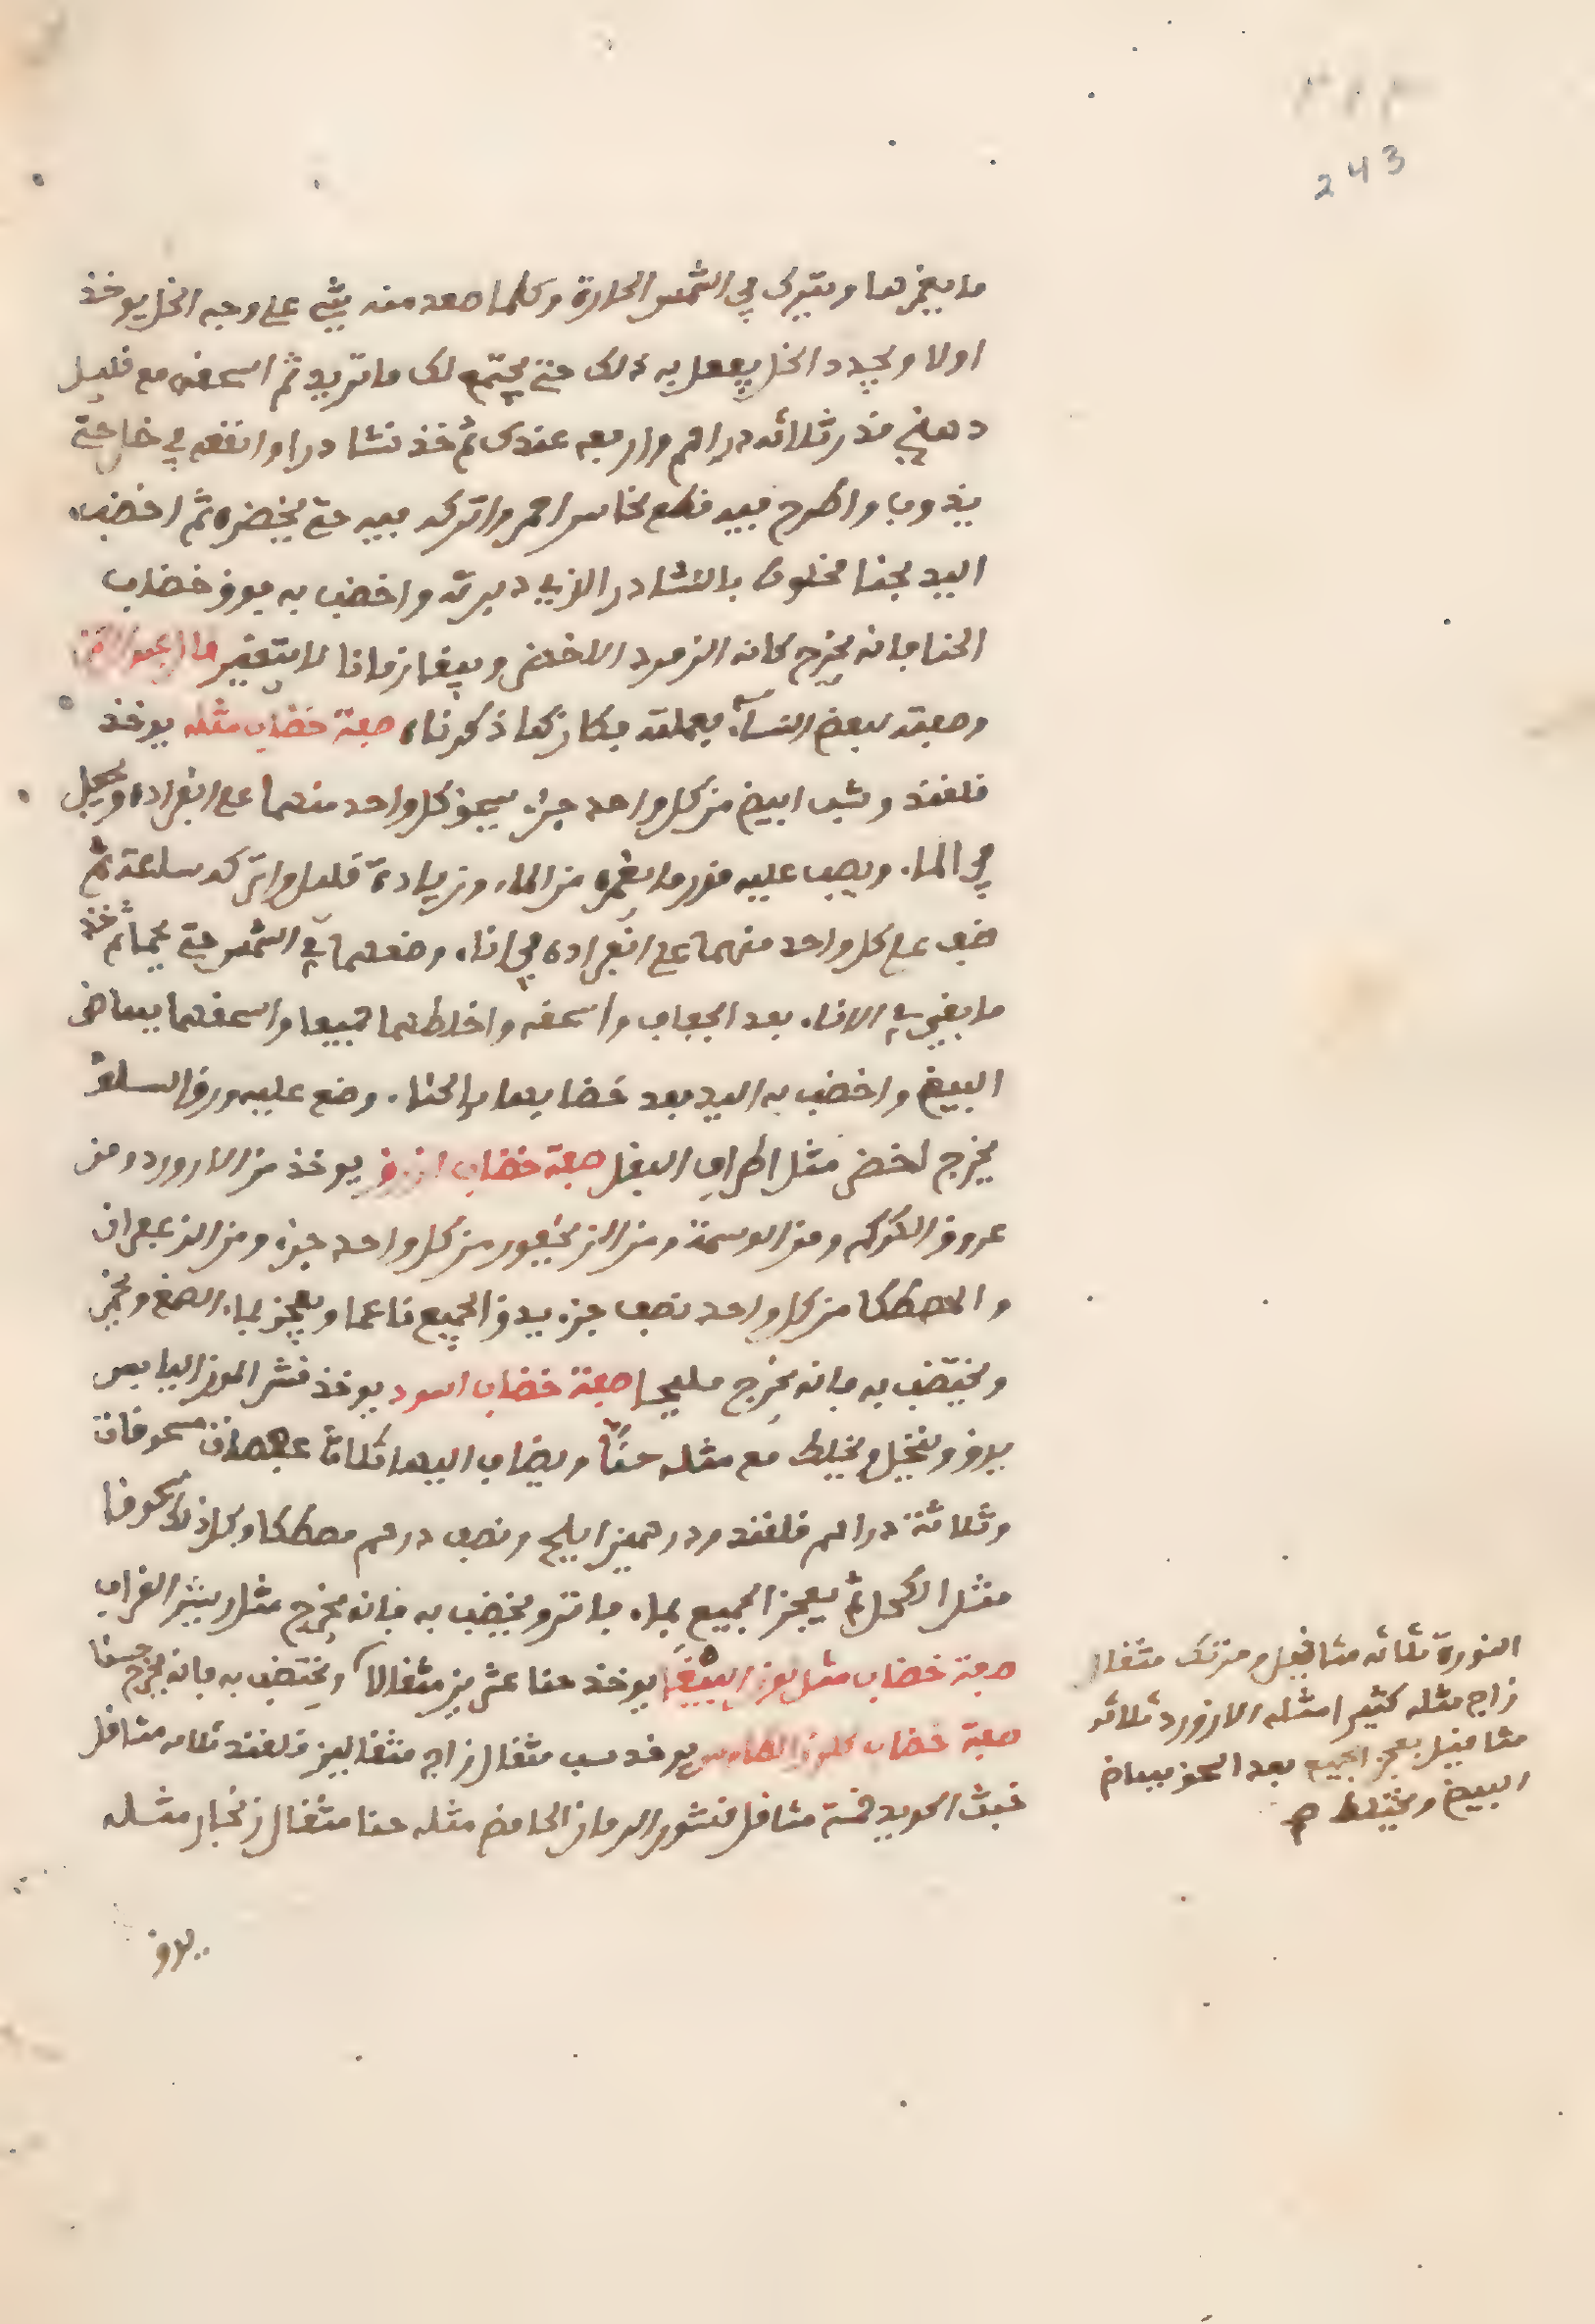 243
ما يغمرها ويترك في الشمس الحارة وكلما صعد منه شي على وجه الخل يوخذ
اولا ويجدد الخل يفعل به ذلك حتى يجتمع لك ما تريد ثم اسحقه مع قليل
دهنج قدر ثلاثه دراهم واربعه عندك ثم خذ نشادرا وانقعه في خل حتى
يذوب واطرح فيه قطع نحاس احمر واتركه فيه حتى يخضره ثم اخضب
اليد بحنا مخلوط بالنشادر الذي دبرته واخضب به فوق خضاب
الحنا فانه يخرج كانه الزمرد الاخضر ويبقا زمانا لا يتغير
وصفته لبعض النسآء فعملته فكان كما ذكرناه صفة خضاب مثله يوخذ
قلقند وشب ابيض من كل واحد جزء يسحق كل واحد منهما على انفراده ويجعل
في الماء ويصب عليه قدر ما يغمره من الماء وزيادة قليل واتركه ساعة ثم
صف على كل واحد منهما على انفراده في اناء وضعهما في الشمس حتى يجفا ثم خذ
ما بقي في الاناء بعد الجفاف واسحقه واخلطهما جميعا واسحقهما ببياض
البيض واخضب به اليد بعد خضابها بالحناء وضع عليه ورق السلق
يخرج اخضر مثل اطراف البقل صفة خضاب ازرق يوخذ من الازورد ومن
عروق الكركم ومن الوسمة ومن الزنجفور من كل واحد جزء ومن الزعفران
والمصطكا من كل واحد نصف جزء يدق الجميع ناعما ويعجن بماء الصمغ ويخمر
ويختضب به فانه يخرج مليحا صفة خضاب اسود يوخذ قشر الموز اليابس
يدق وينخل ويخلط مع مثله حنّا ويضاف اليها ثلاث عفصات مسحوقات
وثلاثة دراهم قلقند ودرهمين ايلج ونصف درهم مصطكا وكل ذلك مسحوقا
مثل الكحل ثم يعجن الجميع بماء فاتر ويخضب به فانه يخرج مثل ريش الغراب
صفة خضاب مثل لون الببغا يوخذ حنا عشرين مثقالا ويختضب به فانه يخرج حسنا
صفة خضاب يوخذ شب مثقال زاج مثقالين قلقند ثلاثه مثاقل
خبث الحديد خمسة مثاقل قشور الرمان الحامض مثله حنا مثقال زنجار مثله
يدق
النورة ثلاثه مثاقيل ومرتك مثقال
زاج مثله كثيرا مثله الازورد ثلاثه
مثاقيل يعجن الجميع بعد السحق ببياض
البيض ويختلط